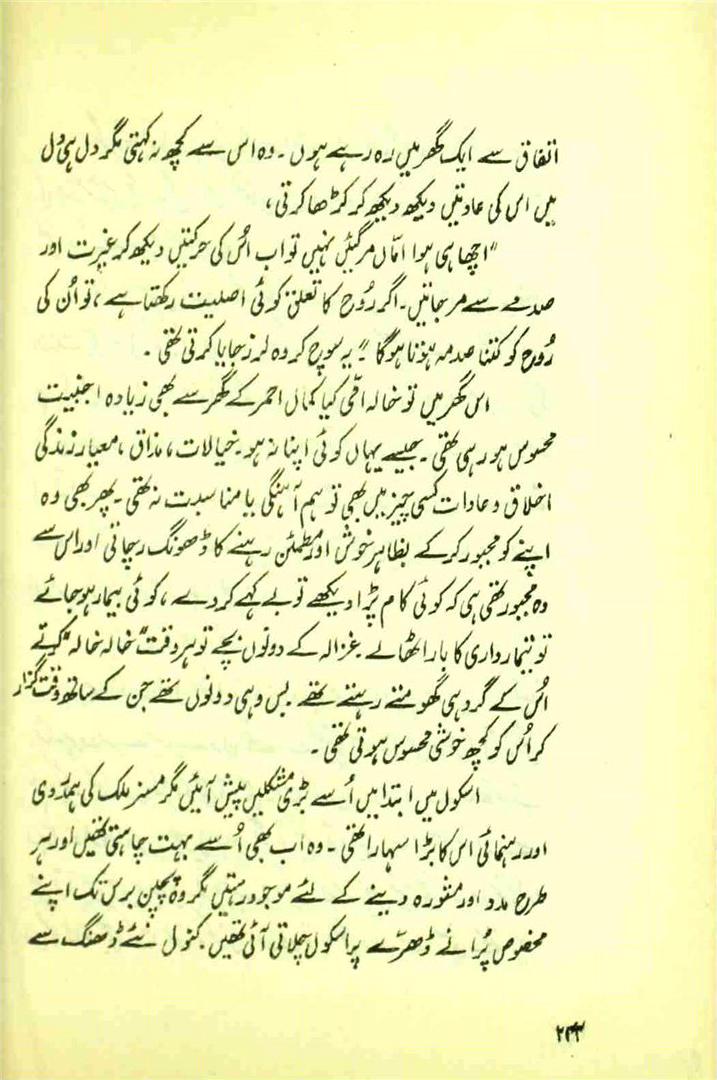 اتفاق سے ایک گھر میں رہ رہے ہوں۔ وہ اس سے کچھ نہ کہتی مگر دل ہی دل
میں اس کی عادتیں دیکھ دیکھ کر کڑھا کرتی،
"اچھا ہی ہوا اماں مرگئیں نہیں تو اب اُس کی حرکتیں دیکھ کر غیرت اور
صدمے سے مرجاتیں۔ اگر رُوح کا تعلق کوئی اصلیت رکھتا ہے، تو اُن کی
رُوح کو کتنا صدمہ ہوتا ہوگا"۔ یہ سوچ کر وہ لرز جایا کرتی تھی۔
اس گھر میں تو خالہ امّی کیا کمال احمر کے گھر سے بھی زیادہ اجنبیت
محسوس ہو رہی تھی۔ جیسے یہاں کوئی اپنا نہ ہو۔ خیالات، مذاق، معیار زندگی
اخلاق و عادات کسی چیز میں بھی تو ہم آہنگی یا مناسبت نہ تھی۔ پھر بھی وہ
اپنے کو مجبور کرکے بظاہر خوش اور مطمئن رہنے کا ڈھونگ رچاتی اور اس سے
وہ مجبور تھی ہی کہ کوئی کام پڑا دیکھے تو بے کہے کردے، کوئی بیمار ہوجائے
تو تیمارداری کا بار اٹھالے۔ غزالہ کے دونوں بچے تو ہر وقت "خالہ خالہ" کہتے
اُس کے گرد ہی گھومتے رہتے تھے۔ بس وہی دونوں تھے جن کے ساتھ وقت گزار
کر اُس کو کچھ خوشی محسوس ہوتی تھی۔
اسکول میں ابتدا میں اُسے بڑی مشکلیں پیش آئیں مگر مسز ملک کی ہمدردی
اور رہنمائی اس کا بڑا سہارا تھی۔ وہ اب بھی اُسے بہت چاہتی تھیں اور ہر
طرح مدد اور مشورہ دینے کے لئے موجود رہتیں مگر وہ پچپن برس تک اپنے
مخصوص پُرانے ڈھرّے پر اسکول چلاتی آئی تھیں۔ کنول نئے ڈھنگ سے
۲۴۳